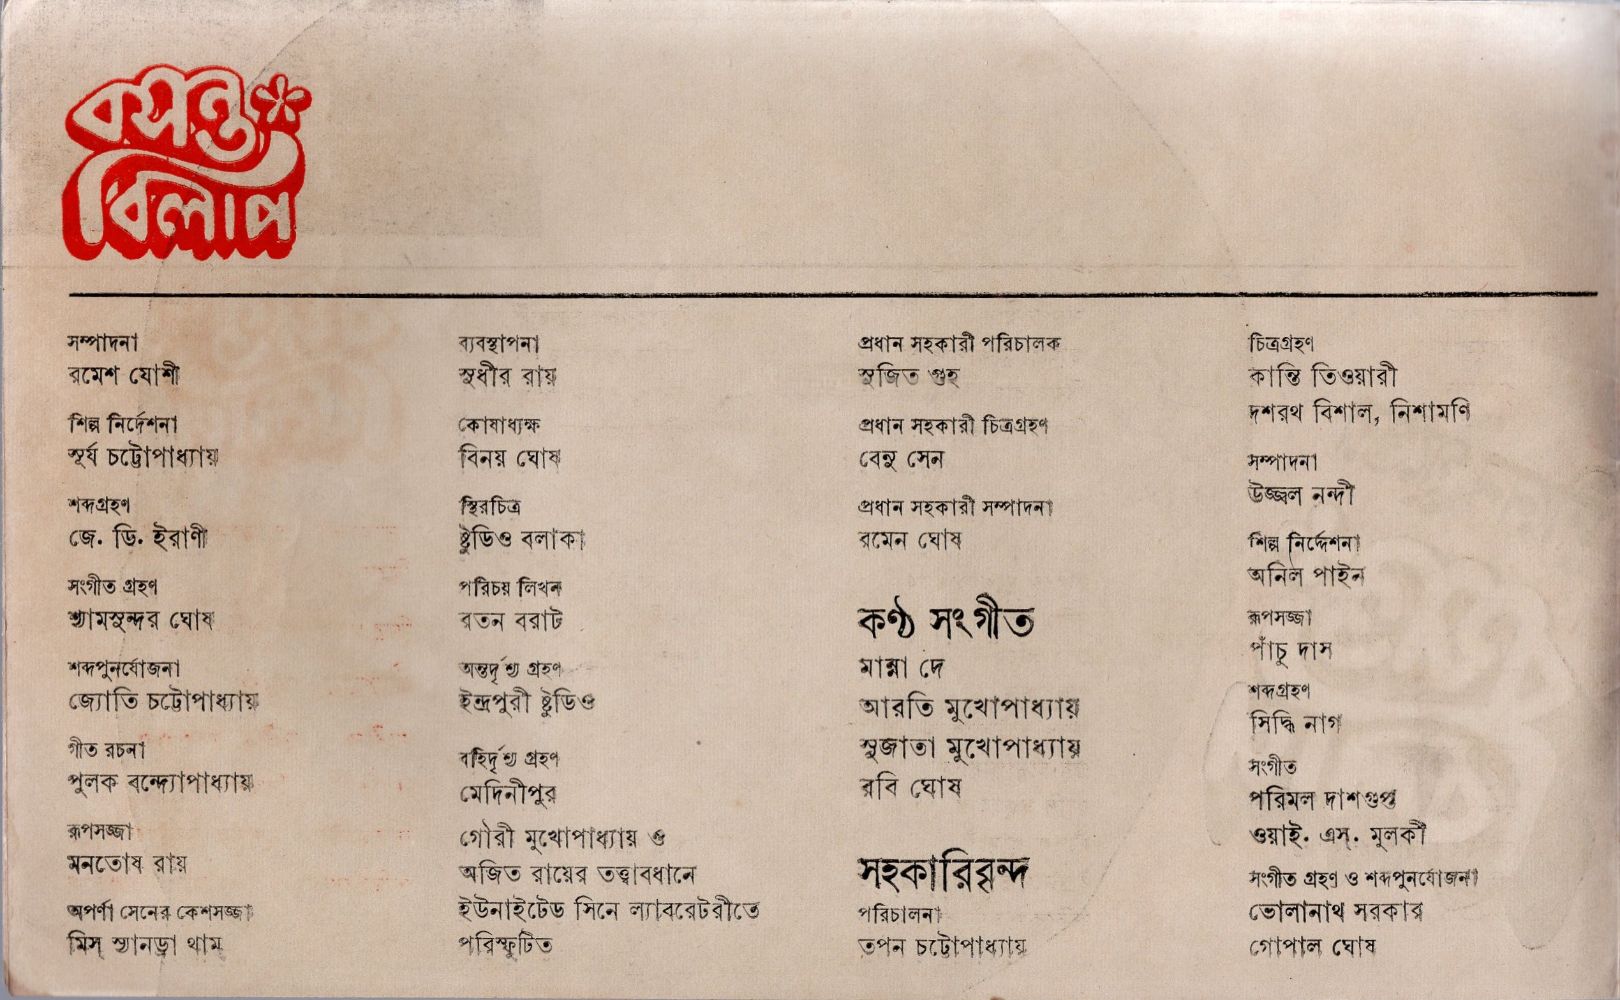 বসন্ত
বিলাপ
সম্পাদনা
রমেশ যোশী
শিল্প নির্দেশনা
সূর্য চট্টোপাধ্যায়
শব্দগ্রহণ
জে. ডি. ইরাণী
সংগীত গ্রহণ
শ্যামসুন্দর ঘোষ
শব্দপুনর্যোজনা
জ্যোতি চট্টোপাধ্যায়
গীত রচনা
পুলক বন্দ্যোপাধ্যায়
রূপসজ্জা
মনতোষ রায়
অপর্ণা সেনের কেশসজ্জা
মিস্ স্যানড্রা থাম্
ব্যবস্থাপনা
সুধীর রায়
কোষাধ্যক্ষ
বিনয় ঘোষ
স্থিরচিত্র
ষ্টুডিও বলাকা
পরিচয় লিখন
রতন বরাট
অন্তর্দৃশ্য গ্রহণ
ইন্দ্রপুরী ষ্টুডিও
বহির্দৃশ্য গ্রহণ
মেদিনীপুর
গৌরী মুখোপাধ্যায় ও
অজিত রায়ের তত্ত্বাবধানে
ইউনাইটেড সিনে ল্যাবরেটরীতে
পরিস্ফুটিত
প্রধান সহকারী পরিচালক
সুজিত গুহ
প্রধান সহকারী চিত্রগ্রহণ
বেনু সেন
প্রধান সহকারী সম্পাদনা
রমেন ঘোষ
কণ্ঠ সংগীত
মান্না দে
আরতি মুখোপাধ্যায়
সুজাতা মুখোপাধ্যায়
রবি ঘোষ
সহকারিবৃন্দ
পরিচালনা
তপন চট্টোপাধ্যায়
চিত্রগ্রহণ
কান্তি তিওয়ারী
দশরথ বিশাল, নিশামণি
সম্পাদনা
উজ্জ্বল নন্দী
শিল্প নির্দ্দেশনা
অনিল পাইন
রূপসজ্জা
পাঁচু দাস
শব্দগ্রহণ
সিদ্ধি নাগ
সংগীত
পরিমল দাশগুপ্ত
ওয়াই. এস্. মুলকী
সংগীত গ্রহণ ও শব্দপুনর্যোজনা
ভোলানাথ সরকার
গোপাল ঘোষ